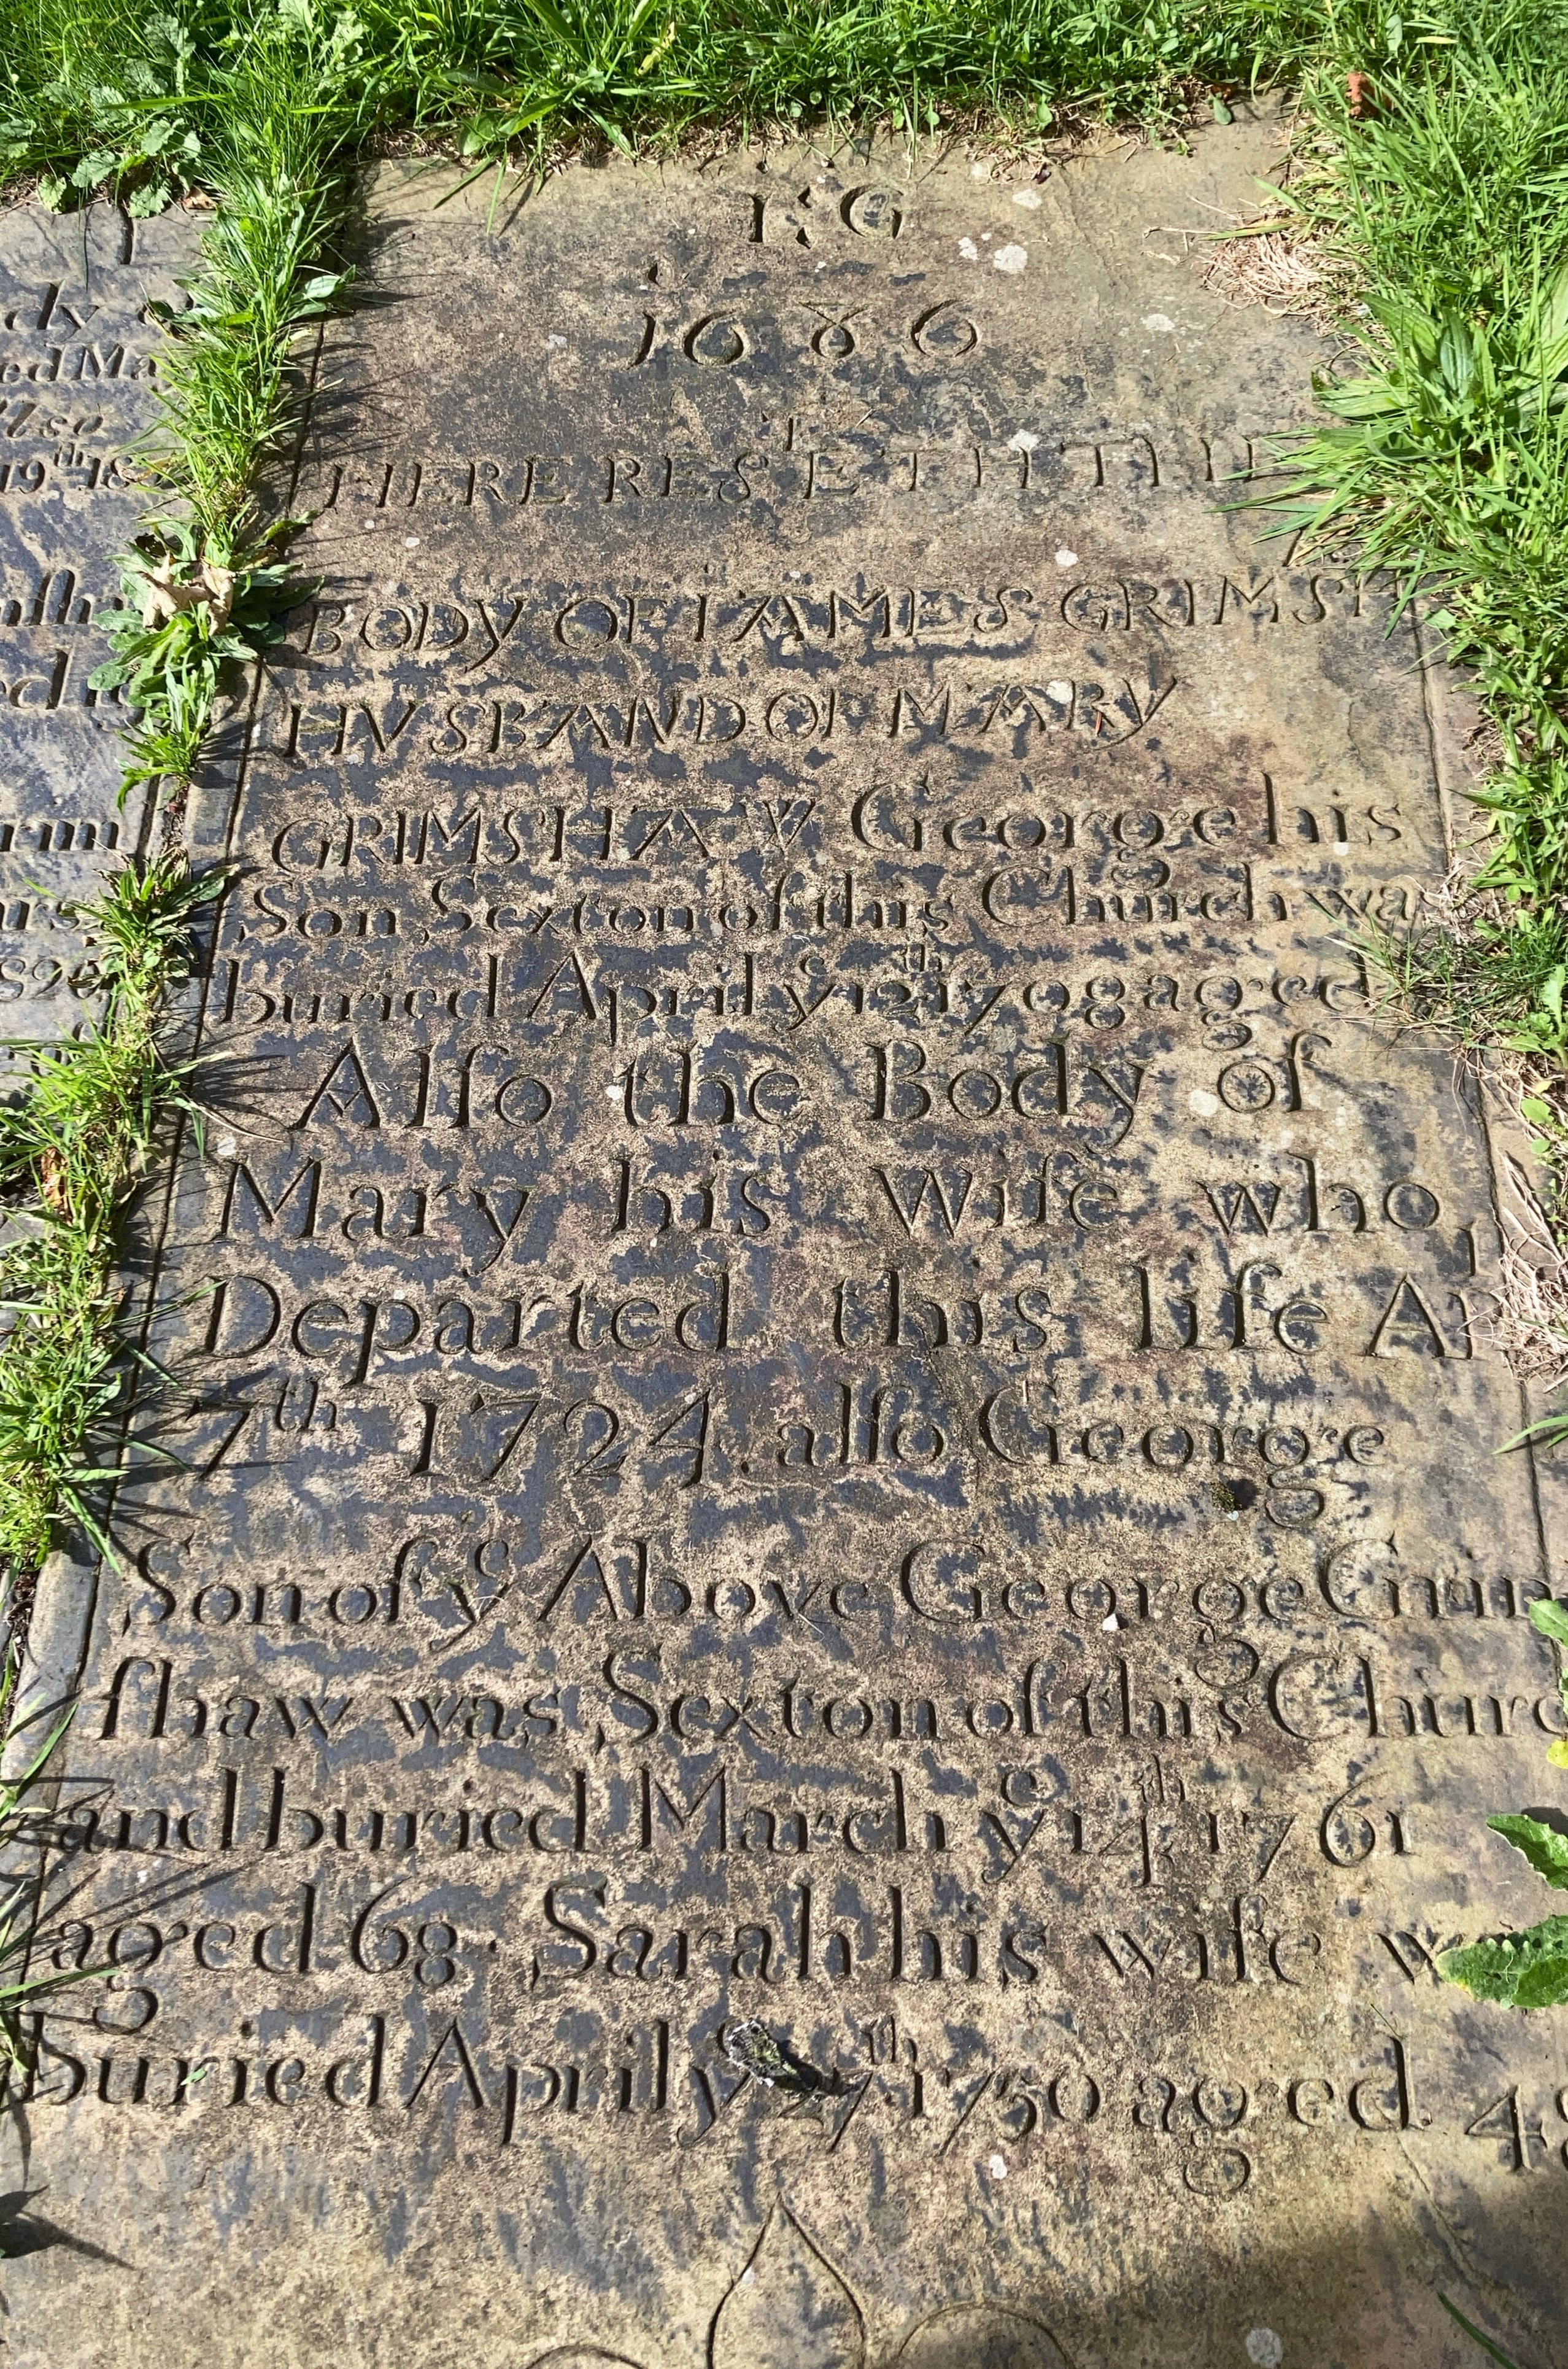 I:G
1686
HERE RESTETH TH
BODY OF IAMES GRIMSH
HVSBAND OF MARY
GRIMSHAW George his
Son, Sexton of this Church wa
buried April yͤ 12ᵗʰ 1708 aged
Alſo the Body of
Mary his Wife who
Departed this life Ap
7ᵗʰ 1724. alſo George
Son of yͤ Above George Grim
ſhaw was Sexton of this Churc
and buried March yͤ 14ᵗʰ 1761
aged 68. Sarah his wife w
Buried April yͤ 27ᵗʰ 1750 aged 4
dy
ed Ma
Also
19ᵗʰ 18